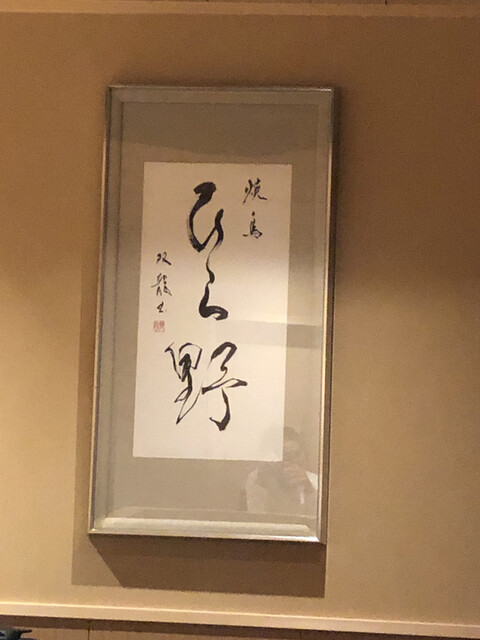 焼鳥
ひら野
双龍